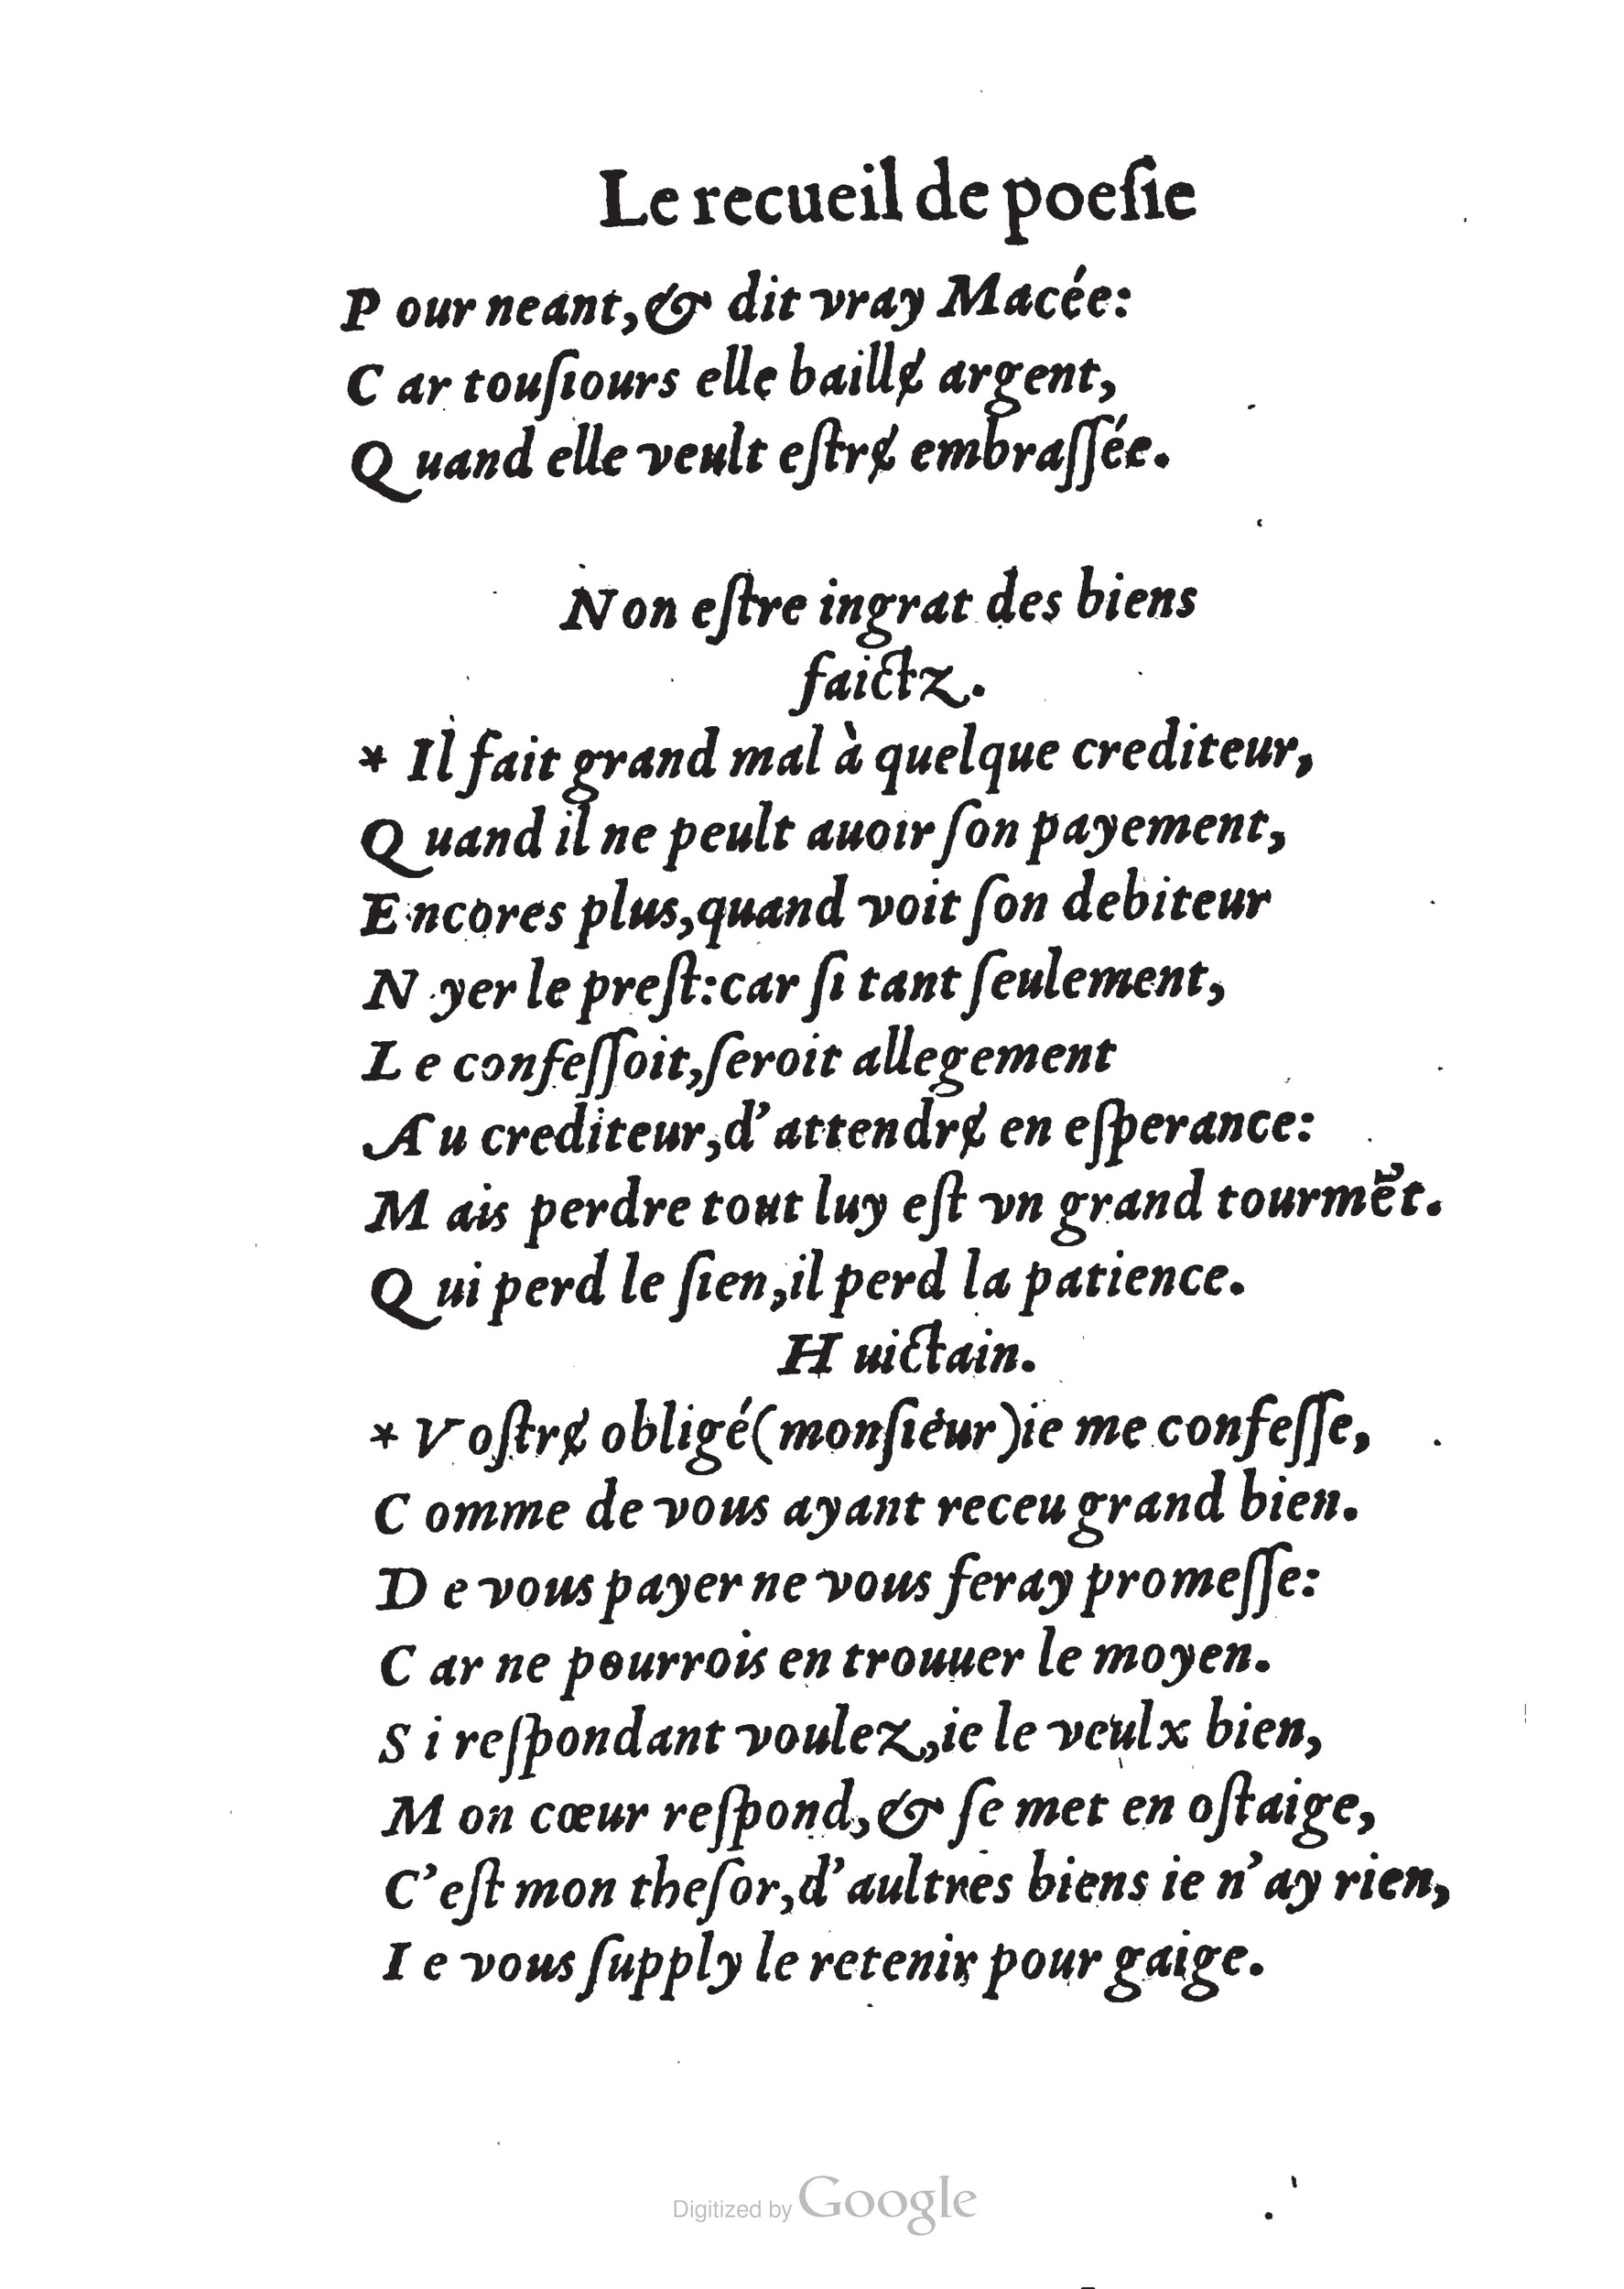 Le recueil de poeſie
P our neant,& dit vray Macée:
C ar touſiours elle baillɇ argent,
Q uand elle veult eſtrɇ embraſſée.
Non eſtre ingrat des biens
faictz.
* Il fait grand mal à quelque crediteur,
Q uand il ne peult auoir ſon payement,
E ncores plus,quand voit ſon debiteur
N yer le preſt:car ſi tant ſeulement,
L e confeſſoit,ſeroit allegement
A u crediteur,d'attendrɇ en eſperance:
M ais perdre tout luy eſt vn grand tourmẽt.
Q ui perd le ſien,il perd la patience.
H uictain.
* V oſtrɇ obligé(monſieur)ie me confeſſe,
C omme de vous ayant receu grand bien.
D e vous payer ne vous feray promeſſe:
C ar ne pourrois en trouuer le moyen.
S i reſpondant voulez,ie le veulx bien,
M on cœur reſpond,& ſe met en oſtaige,
C'eſt mon theſor,d'aultres biens ie n'ay rien,
I e vous ſupply le retenir pour gaige.
Digitized by Google